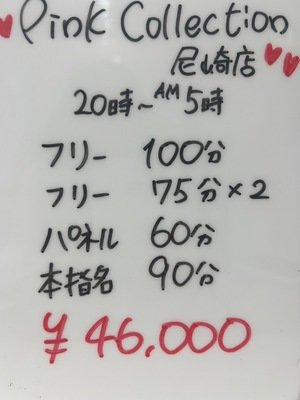 Pink Collection
尼崎店
20時~AM5時
フリー 100分
フリー 75分×2
パネル 60分
本指名 90分
¥46,000